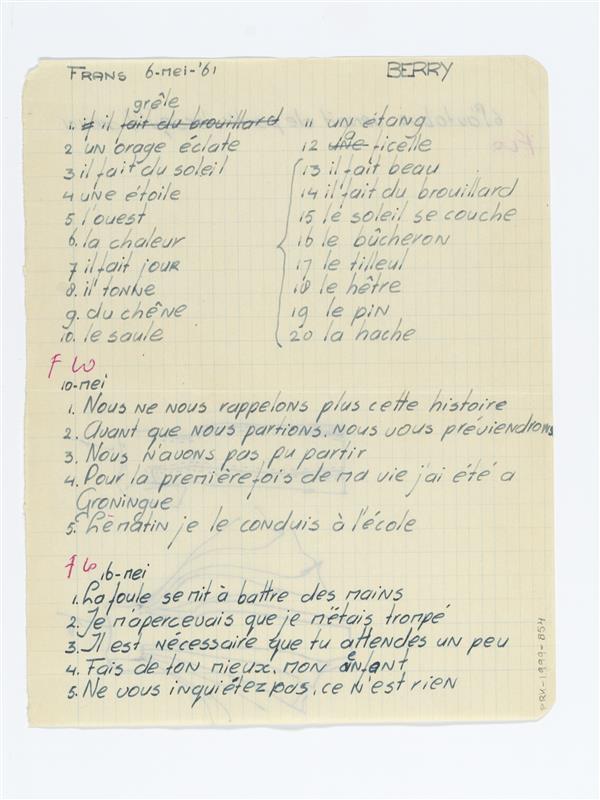 FRANS 6-mei-'61 BERRY
grêle
1. il fait du brouillard
2 un orage éclate
3 il fait du soleil
4 une étoile
5 l'ouest
6. la chaleur
7 il fait jour
8. il tonne
9. du chêne
10. le saule
11 un étang
12 une ficelle
13 il fait beau
14 il fait du brouillard
15 le soleil se couche
16 le bûcheron
17 le tilleul
18 le hêtre
19 le pin
20 la hache
10-mei
1. Nous ne nous rappelons plus cette histoire
2. Avant que nous partions, nous vous préviendrons
3. Nous n'avons pas pu partir
4. Pour la première fois de ma vie j'ai été a
Groningue
5. Le matin je le conduis à l'école
16-mei
1. La foule se mit à battre des mains
2. Je m'apercevais que je m'étais trompé
3. Il est nécessaire que tu attendes un peu
4. Fais de ton mieux, mon enfant
5. Ne vous inquiétez pas, ce n'est rien
PRK-1999-854